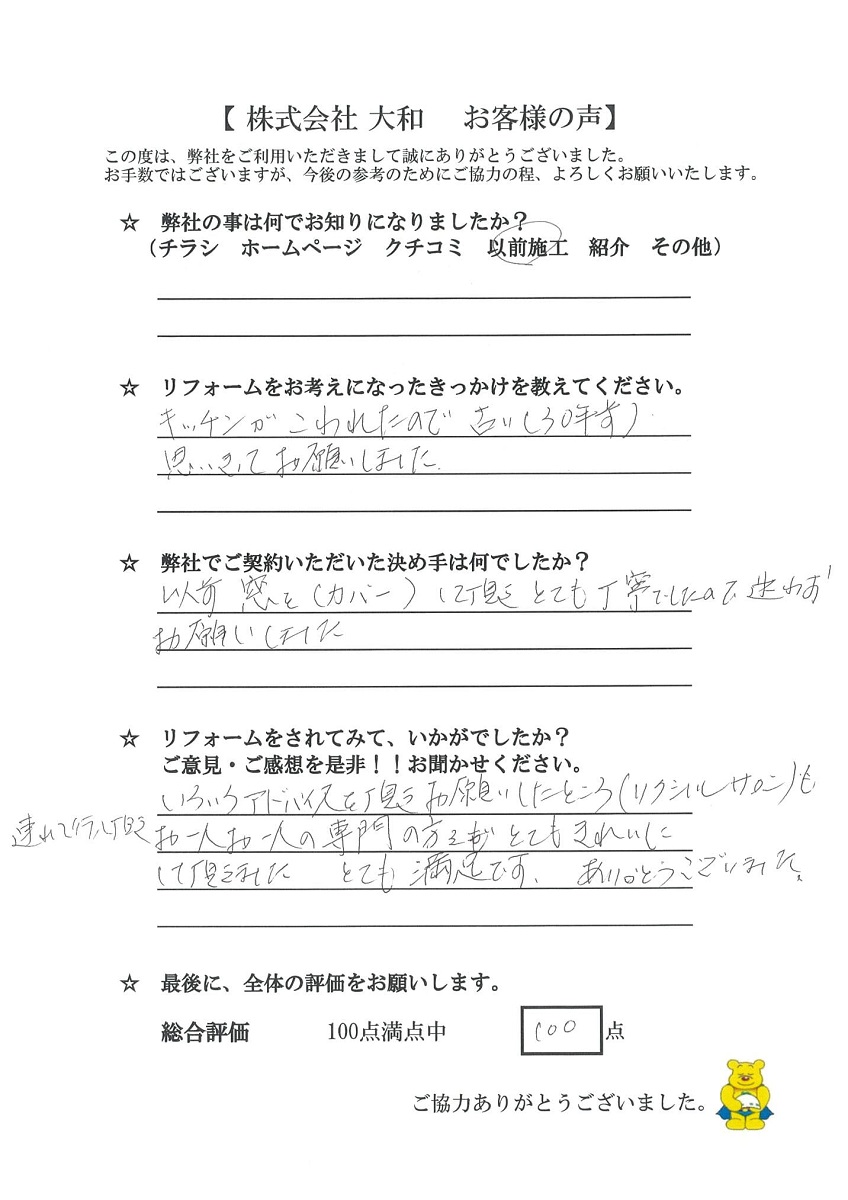 【 株式会社 大和　お客様の声】
この度は、弊社をご利用いただきまして誠にありがとうございました。
お手数ではございますが、今後の参考のためにご協力の程、よろしくお願いいたします。
☆　弊社の事は何でお知りになりましたか？
（チラシ　ホームページ　クチコミ　以前施工　紹介　その他）
☆　リフォームをお考えになったきっかけを教えてください。
キッチンがこわれたので 古い(30年者)
思いきって お願いしました。
☆　弊社でご契約いただいた決め手は何でしたか？
以前 窓を（カバー）して頂き とても丁寧でしたので 迷わず
お願いしました
☆　リフォームをされてみて、いかがでしたか？
ご意見・ご感想を是非！！お聞かせください。
いろいろアドバイスを頂き お願いしたところ(リクシルサロン)も
連れて行って頂き お一人お一人の専門の方々が とてもきれいに
して頂きました　とても 満足です、 ありがとうございました。
☆　最後に、全体の評価をお願いします。
総合評価　100点満点中　100 点
ご協力ありがとうございました。